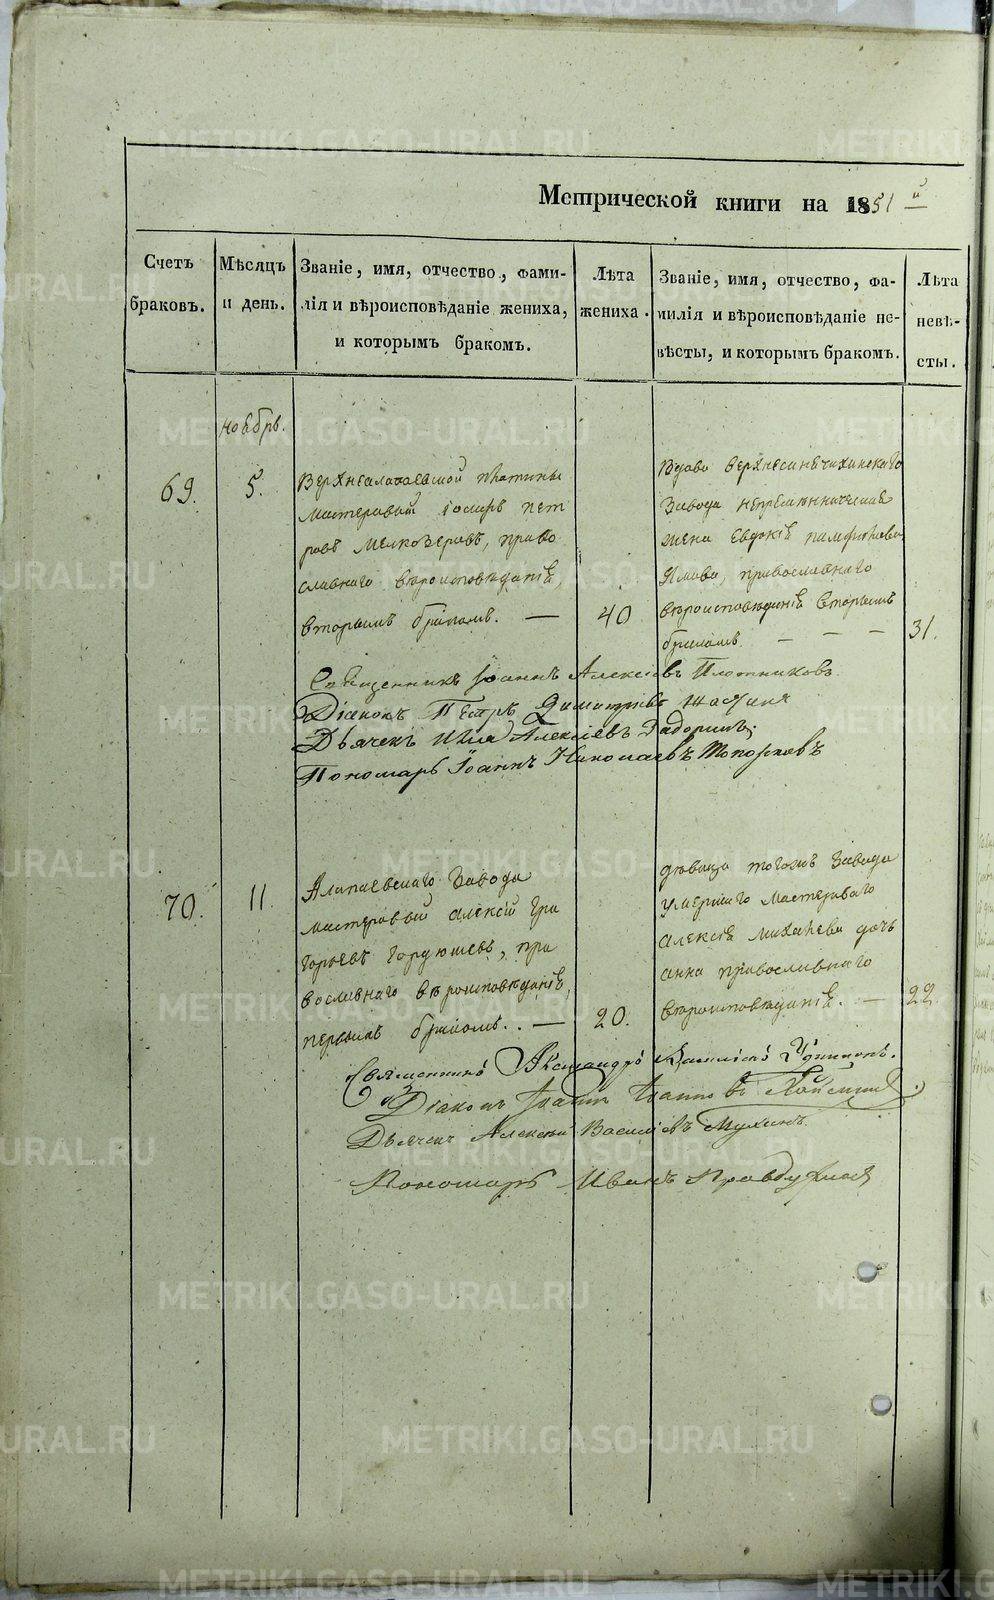 Метрической книги на 1851 й
Счетъ браковъ.
Мѣсяцъ и день.
Званіе, имя, отчество, фами-
лія и вѣроисповѣданіе жениха,
и которымъ бракомъ.
Лѣта жениха.
Званіе, имя, отчество, фа-
милія и вѣроисповѣданіе не-
вѣсты, и которымъ бракомъ.
Лѣта невѣ-
сты.
ноябрь.
69.
5.
Верхнеалапаевской плотины
мастеровой Іосифъ Пет
ровъ Мелкозеровъ, право
славнаго вѣроисповѣданія,
вторымъ бракомъ. —
40
Вдова Верхнесинячихинскаго
Завода
жена Евдокія Памфилова
православнаго
вѣроисповѣданія вторымъ
бракомъ. — — —
31.
Священникъ Іоаннъ Алексѣевъ Плотниковъ
Діаконъ Петръ Димитріевъ
Дьячекъ Илья Алексѣевъ
Пономарь Іоаннъ Николаевъ Топорковъ
70.
11.
Алапаевскаго Завода
мастеровой Алексѣй Гри
горьевъ Гордюшевъ, пра
вославнаго вѣроисповѣданія,
первымъ бракомъ. —
20.
дѣвица тогожъ Завода
умершаго мастероваго
Алексѣя Михалева дочь
Анна православнаго
вѣроисповѣданія. —
22.
Священникъ Александръ Василіевъ Удинцовъ.
Діаконъ Іоаннъ Іоанновъ
Дьячекъ Алексѣй Василіевъ Мухинъ.
Пономарь Иванъ
METRIKI.GASO-URAL.RU